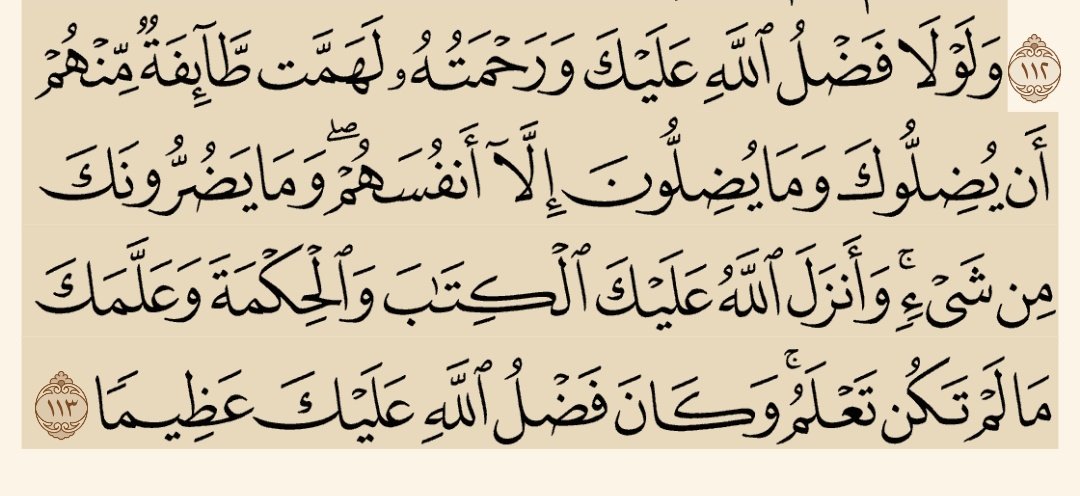 ١١٢ وَلَوۡلَا فَضۡلُ ٱللَّهِ عَلَيۡكَ وَرَحۡمَتُهُۥ لَهَمَّت طَّآئِفَةٞ مِّنۡهُمۡ
أَن يُضِلُّوكَ وَمَا يُضِلُّونَ إِلَّآ أَنفُسَهُمۡۖ وَمَا يَضُرُّونَكَ
مِن شَيۡءٖۚ وَأَنزَلَ ٱللَّهُ عَلَيۡكَ ٱلۡكِتَٰبَ وَٱلۡحِكۡمَةَ وَعَلَّمَكَ
مَا لَمۡ تَكُن تَعۡلَمُۚ وَكَانَ فَضۡلُ ٱللَّهِ عَلَيۡكَ عَظِيمٗا ١١٣